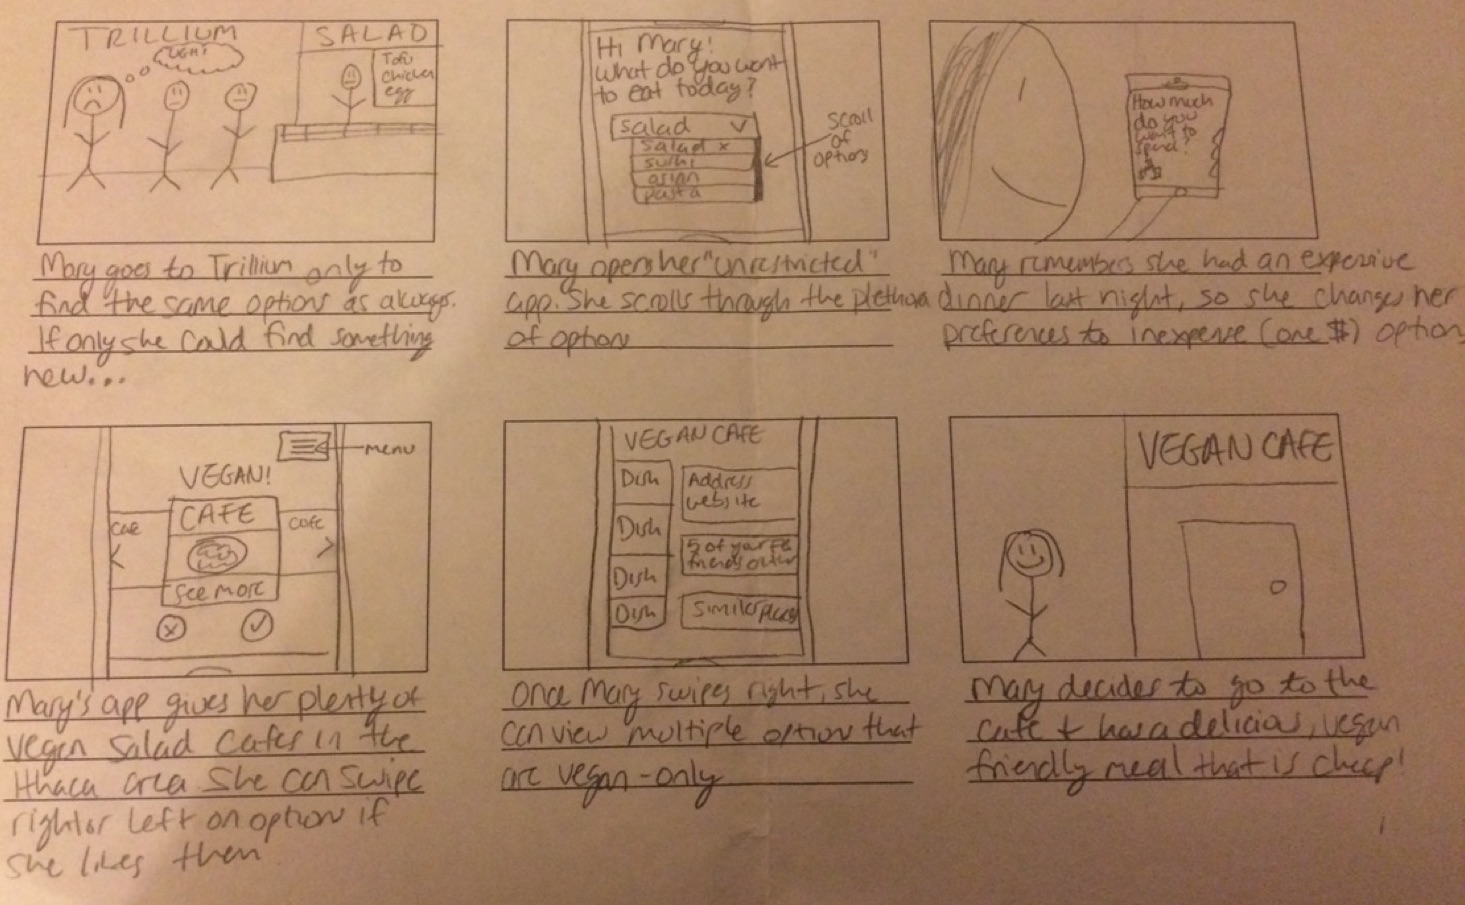 TRILLIUM
UGH!
SALAD
Tofu
chicken
egg
Mary goes to Trillium only to
find the same options as always.
If only she could find something
new...
Hi Mary!
What do you want
to eat today?
Salad
Salad x
sushi
asian
pasta
Scroll
of
options
Mary opens her "unrestricted"
app. She scrolls through the plethora
of option
How much
do you
want to
spend?
Mary remembers she had an expensive
dinner last night, so she changes her
preferences to inexpense (one $) option
menu
VEGAN!
CAFE
cafe
see more
Mary's app gives her plenty of
vegan salad cafes in the
Ithaca area. She can swipe
right or left on option if
she likes them
VEGAN CAFE
Dish
Dish
Dish
Dish
Address
website
5 of your FB
friends
Similar places
Once Mary swipes right, she
can view multiple option that
are vegan-only
VEGAN CAFE
Mary decides to go to the
cafe + has a delicious, vegan
friendly meal that is cheap!